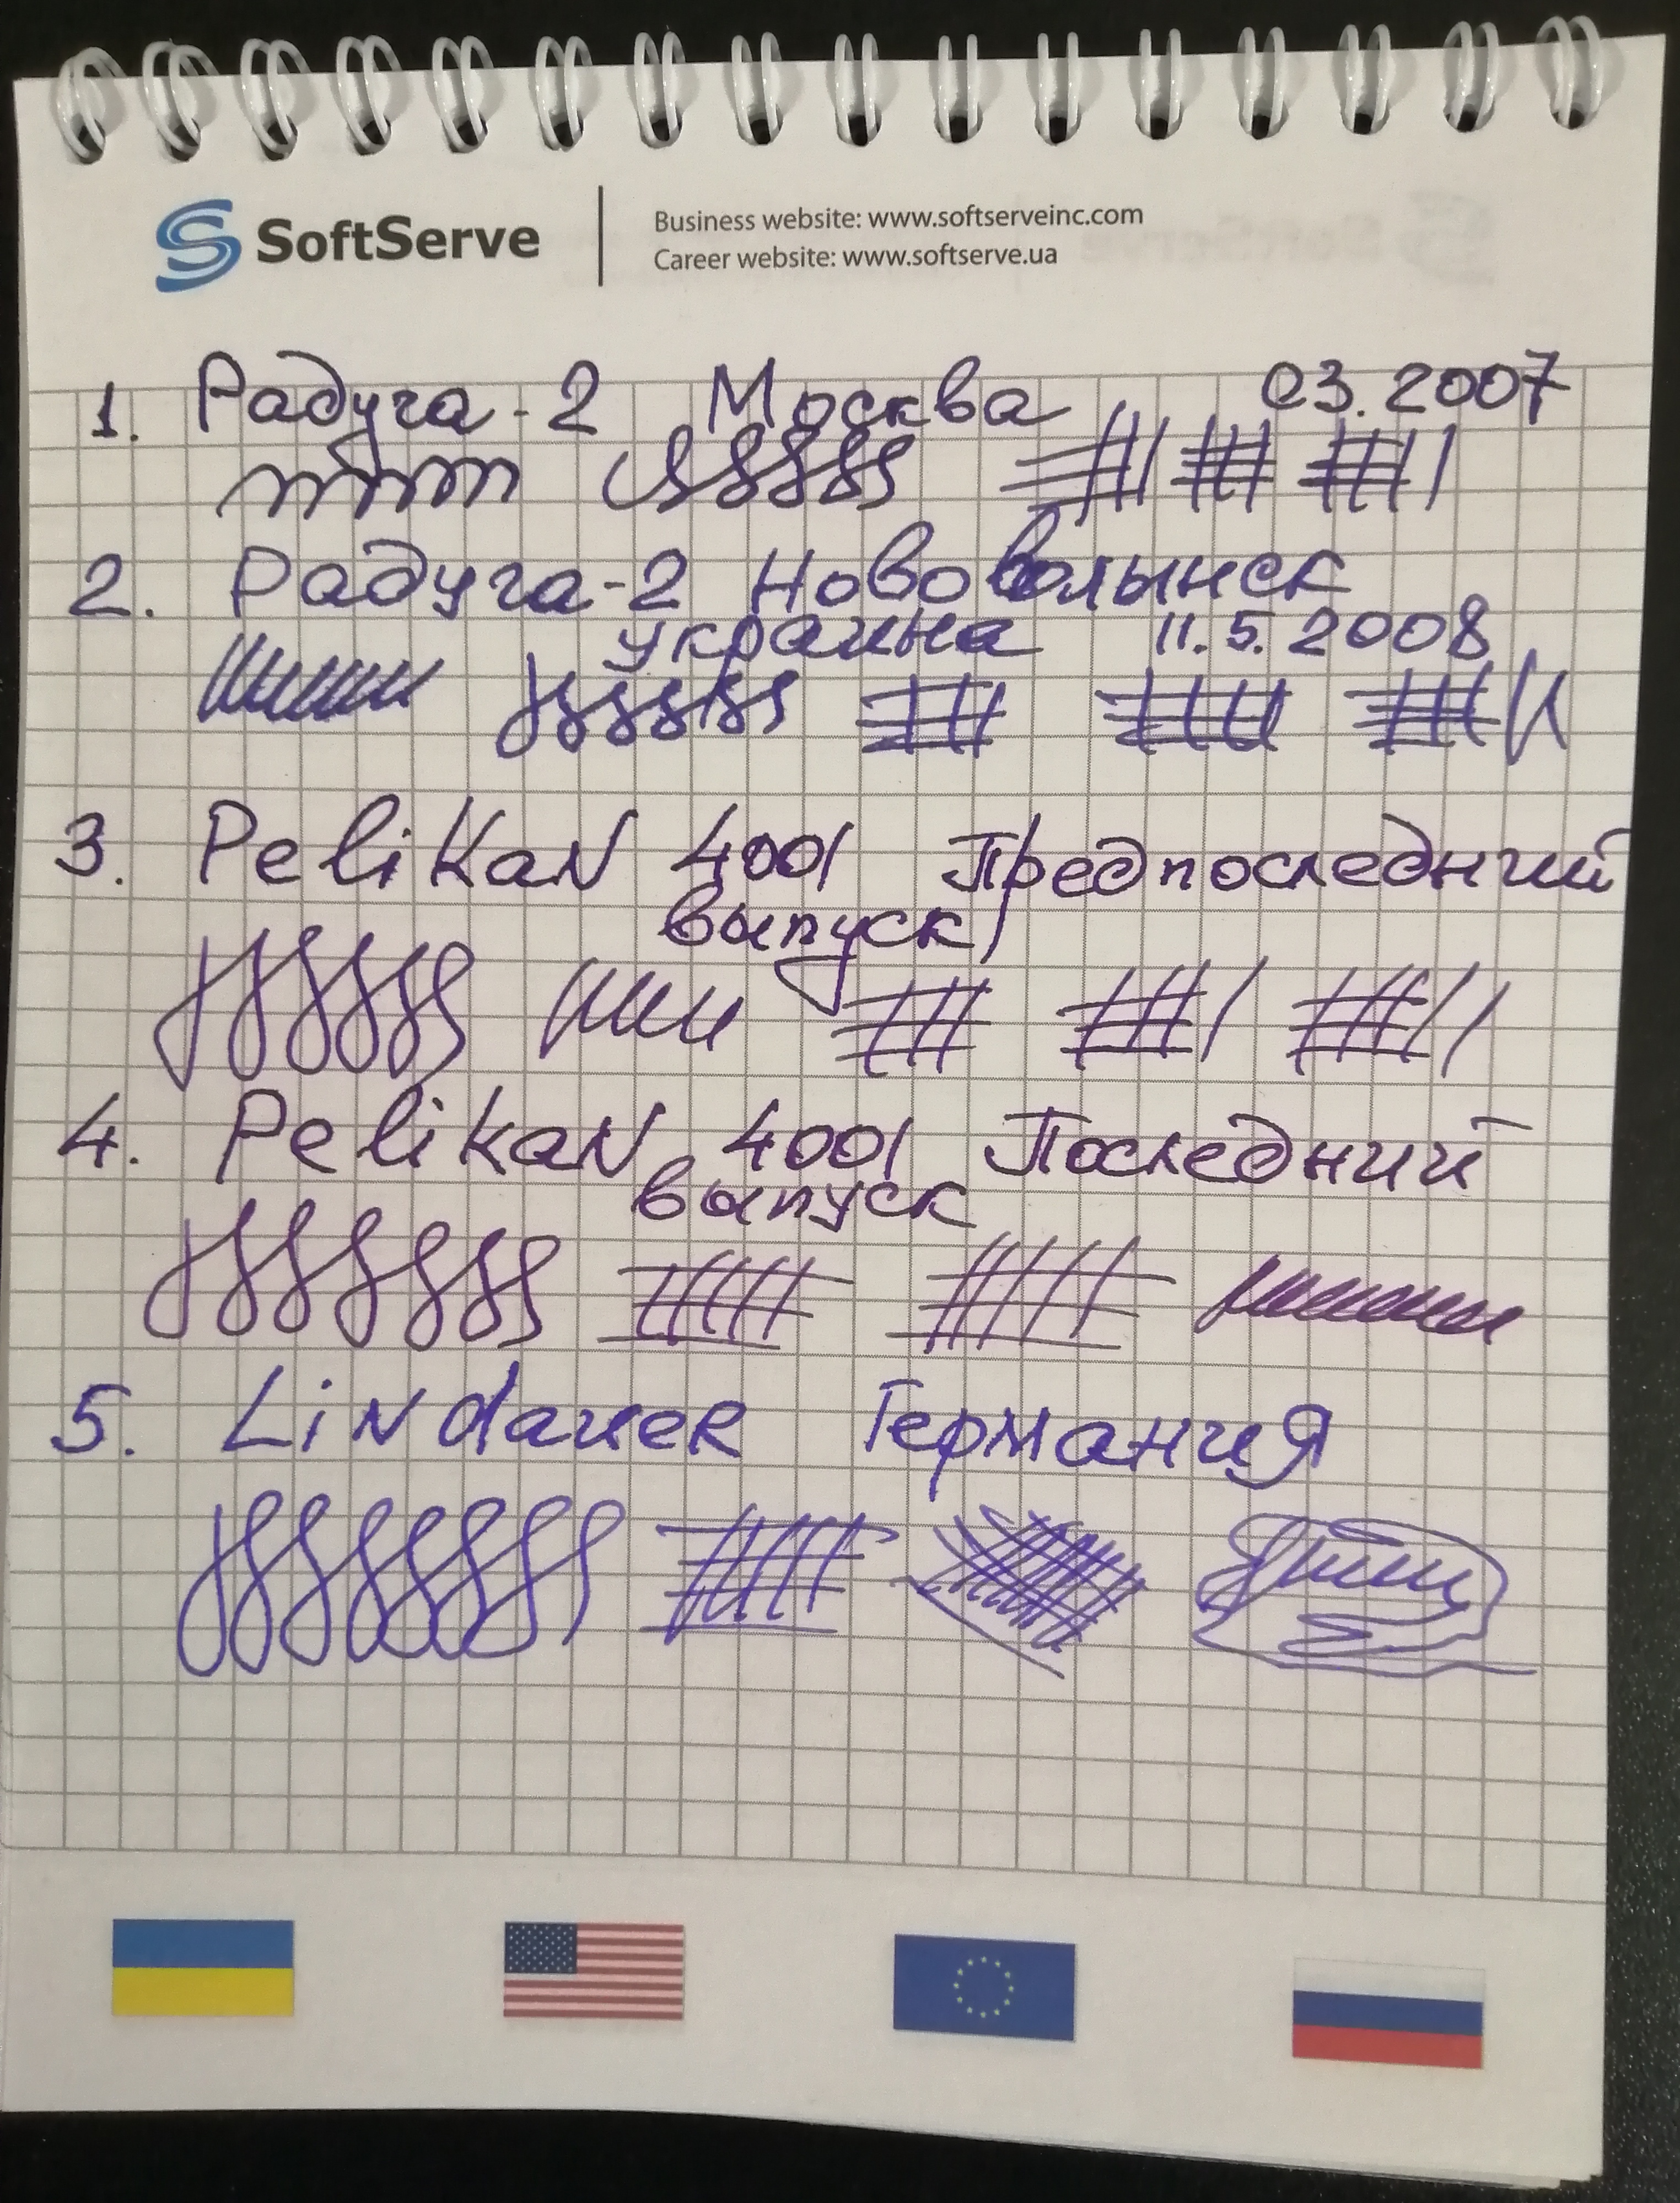 SoftServe
Business website: www.softserveinc.com
Career website: www.softserve.ua
1. Радуга-2 Москва 03.2007
2. Радуга-2 Нововолынск
Украина 11.5.2008
3. Pelikan 4001 Предпоследний
выпуск
4. Pelikan 4001 Последний
выпуск
5. Lindauer Германия